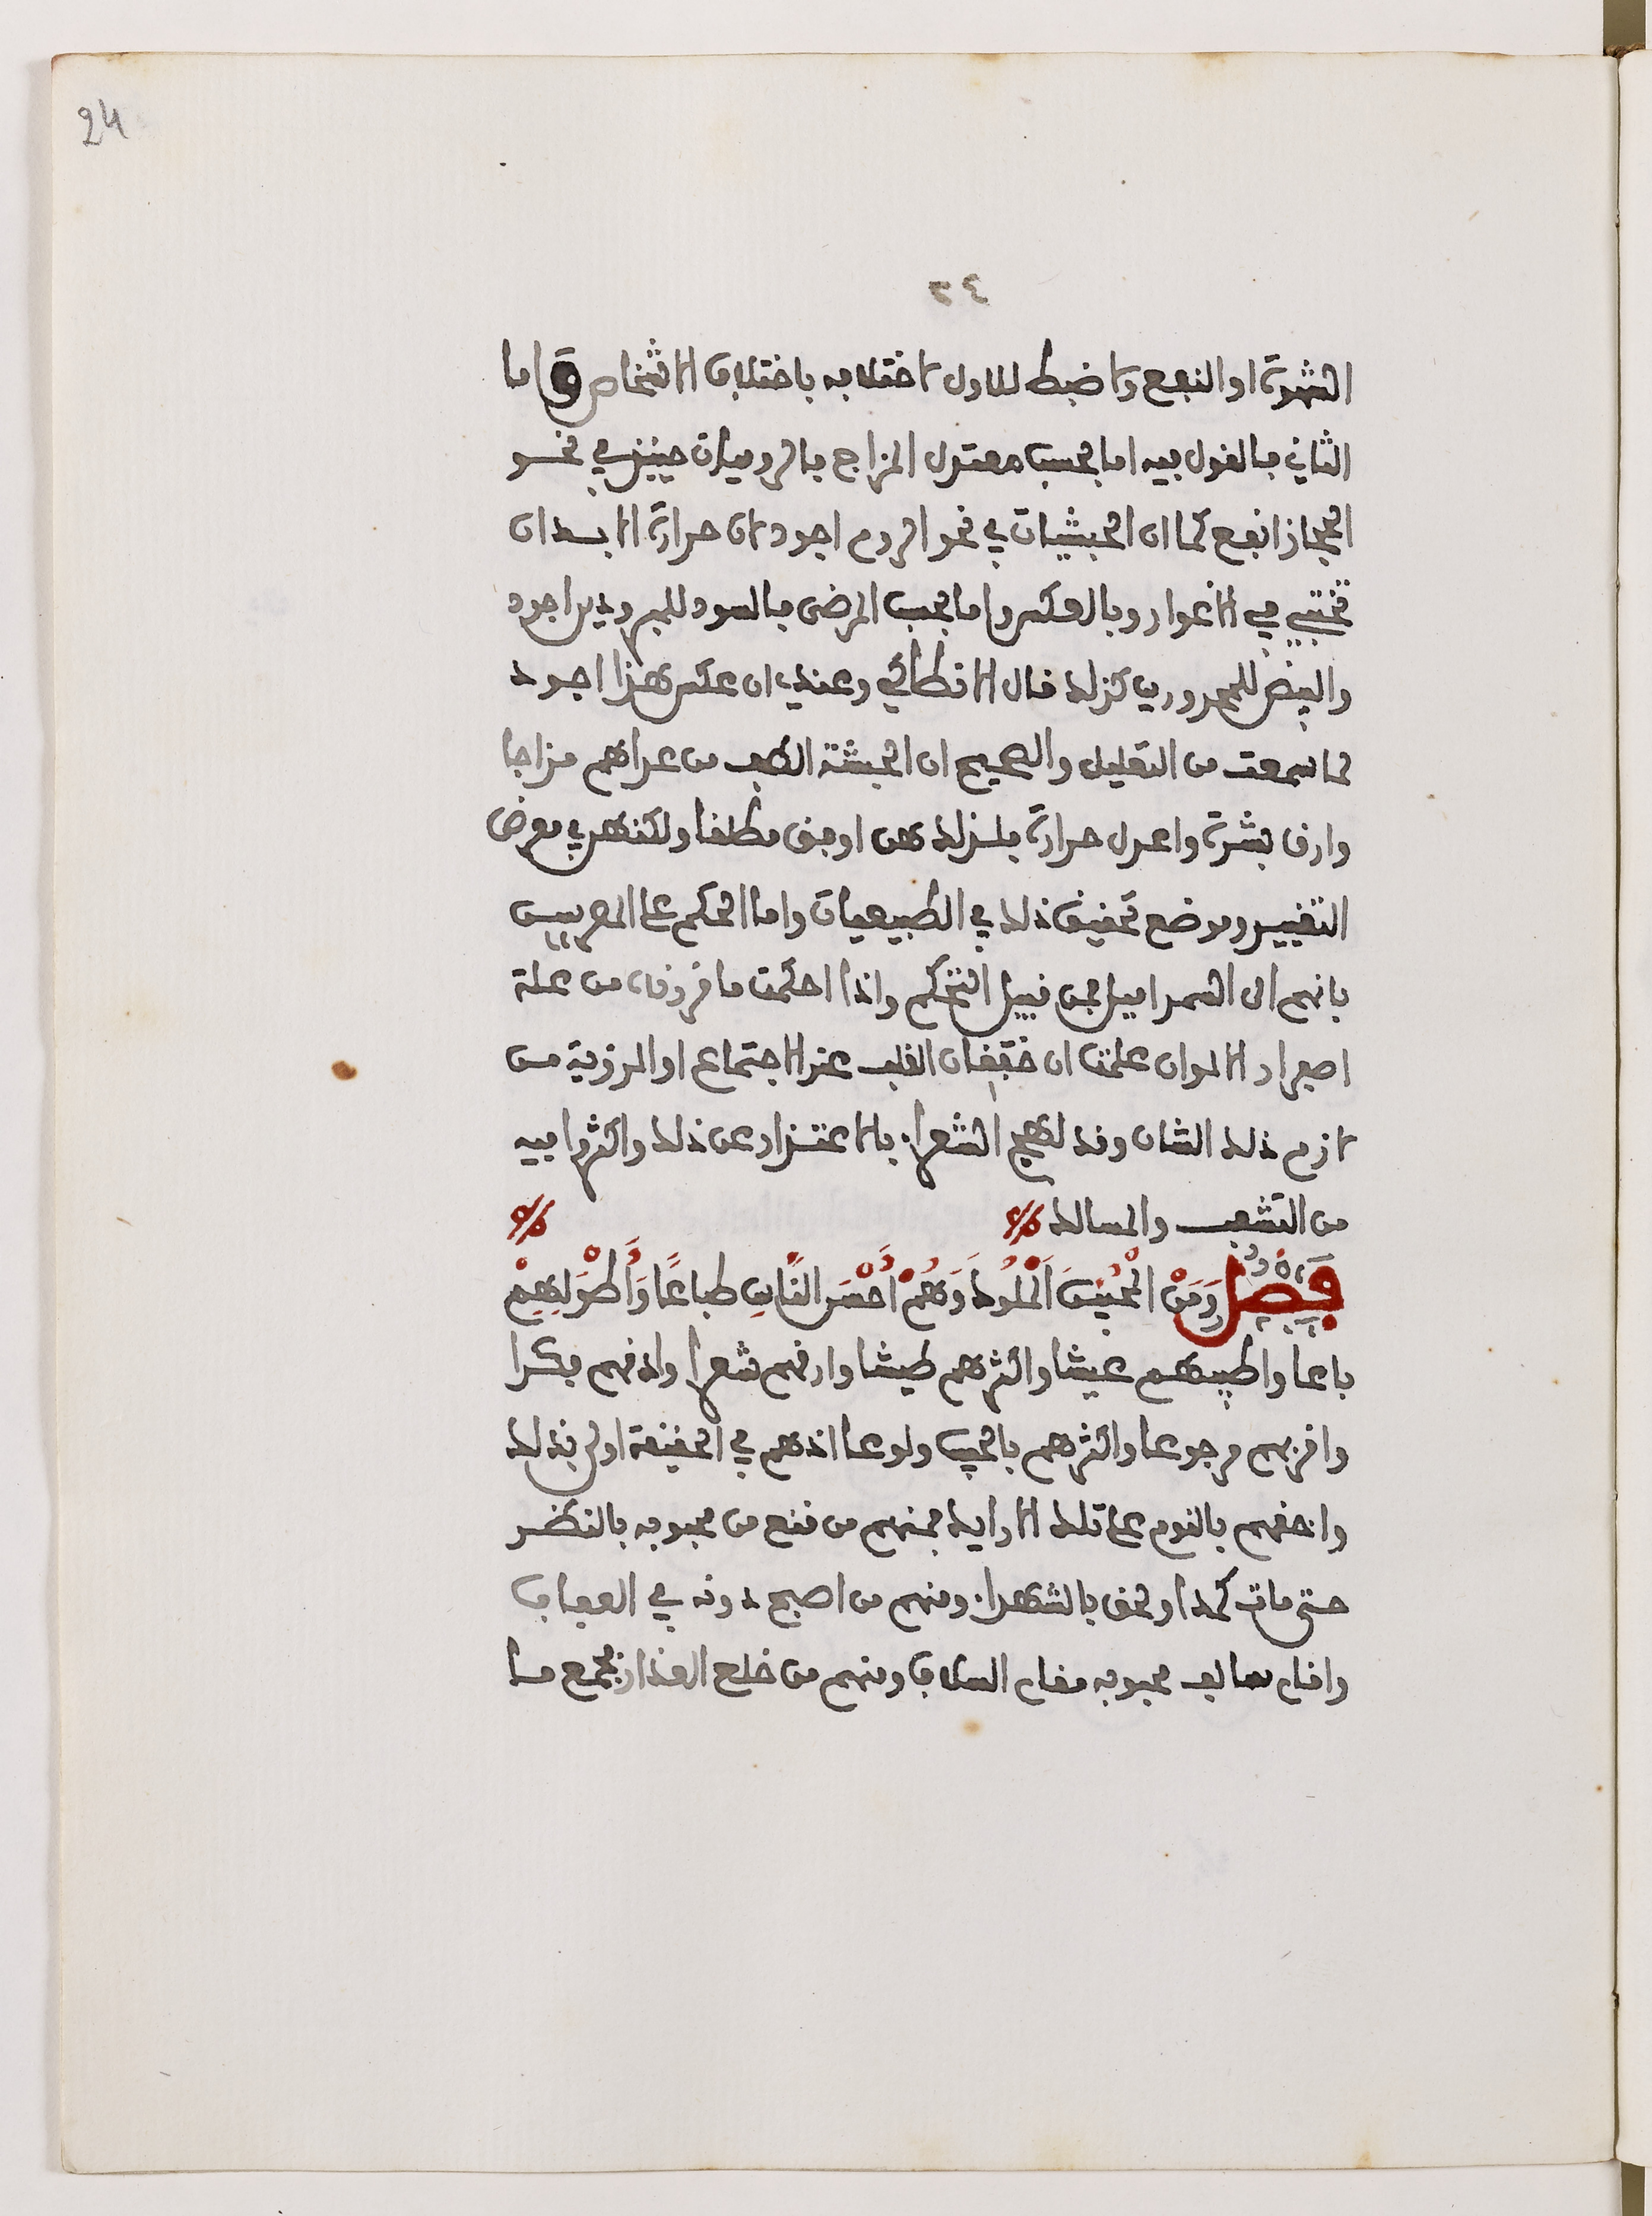 24
٢٤
الشهوة او النفع ولا ضبط للاول لاختلافه باختلاف الاشخاص واما
الثاني فالقول فيه اما بحسب معتدل المزاج فالروميات حينئذ في نحو
الحجاز انفع كما ان الحبشيات في نحو الروم اجود لان حرارة الابدان
تختبي في الاغوار وبالعكس واما بحسب المرضى فالسود للمبرودين اجود
والبيض للمحرورين كذلك قال الانطاكي وعندي ان عكس هذا اجود
لما سمعت من التعليل والصحيح ان الحبشة الطف من عداهم مزاجا
وارق بشرة واعدل حرارة فلذلك هن اوفق مطلقا ولكنهن في معرض
التغيير وموضع تحقيق ذلك في الطبيعيات واما الحكم على المصريين
بانهم الى السمر اميل فمن قبيل التحكم واذا احكمت ما قررناه من علة
اصفرار الالوان علمت ان خفقان القلب عند الاجتماع او الرؤية من
لازم ذلك الشان وقد لهج الشعراء بالاعتذار عن ذلك واكثروا فيه
من التشعب والمسالك
فَصْلٌ وَمِنْ الْمُحِبِّينَ الْمُلُوكُ وَهُمْ أَحْسَنُ النَّاسِ طباعًا وَأَطْوَلُهُمْ
باعا واطيبهم عيشا واكثرهم طيشا وارقهم شعرا وادقهم فكرا
واقربهم رجوعا واكثرهم بالحب ولوعا اذ هم في الحقيقة اولى بذلك
واحقهم بالنوم على تلك الارايك فمنهم من قنع من محبوبه بالنظر
حتى مات كمدا ولحق بالشهداء ومنهم من اصبح دونه في العفاف
واقام سالف محبوبه مقام السلاف ومنهم من خلع العذار فجمع ما